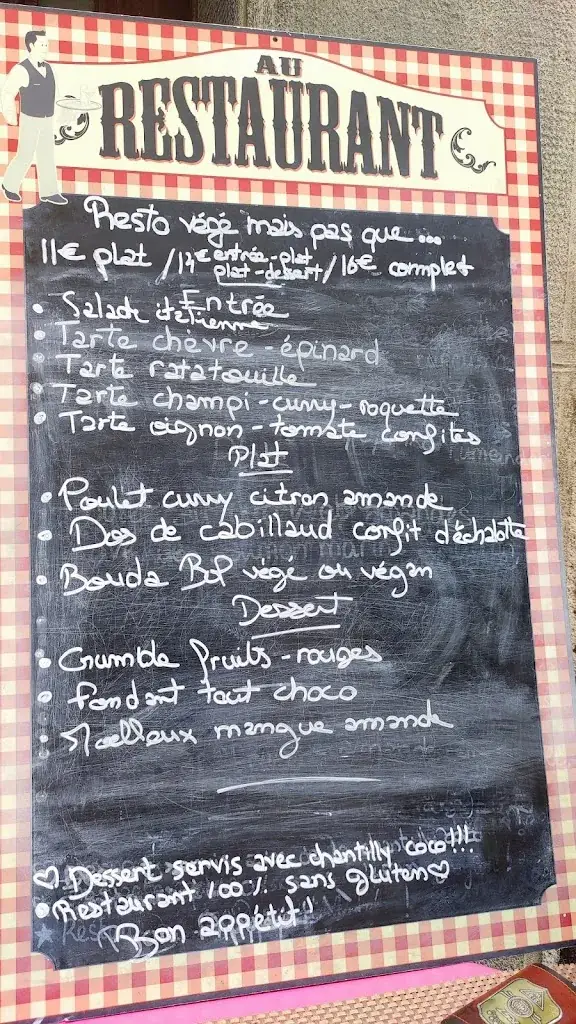 AU
RESTAURANT
Resto végé mais pas que...
11€ plat / 14€ entrée-plat plat-dessert / 16€ complet
Entrée
• Salade italienne
• Tarte chèvre - épinard
• Tarte ratatouille
• Tarte champi-curry-roquette
• Tarte oignon-tomate confites
Plat
• Poulet curry citron amande
• Dos de cabillaud confit d'échalotte
• Bouda Bol végé ou végan
Dessert
• Crumble fruits-rouges
• fondant tout choco
• Moelleux mangue amande
♡ Dessert servis avec chantilly coco!!!
• Restaurant 100% sans gluten ♡
Bon appétit!